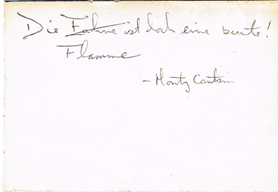 Die Fahne ist doch eine bunte!
Flamme
- Monty Cantsin